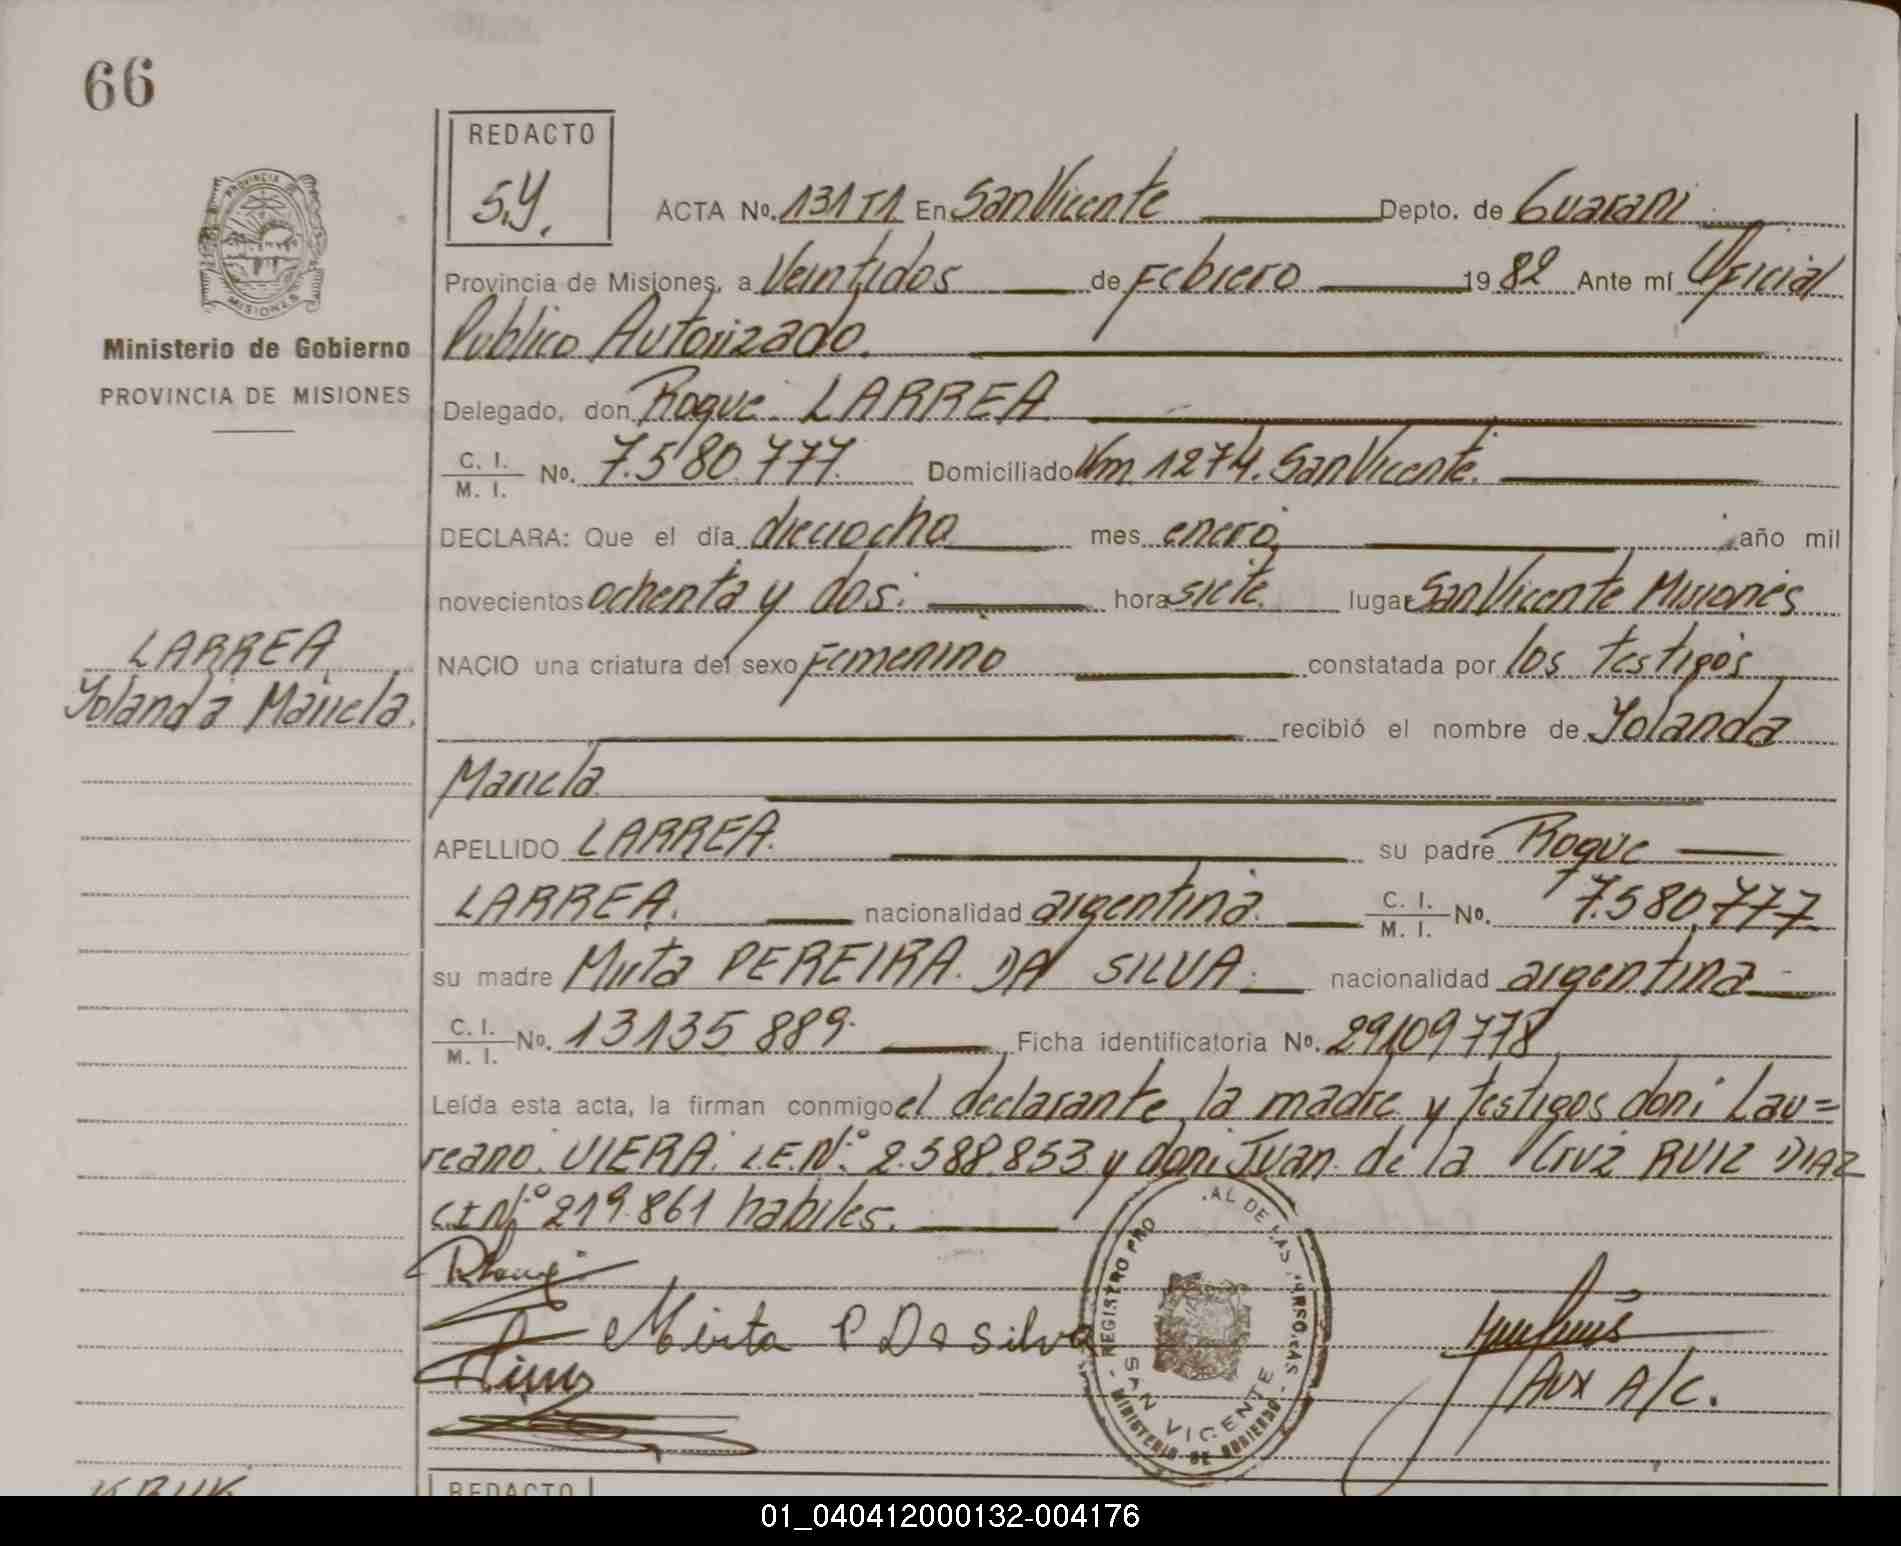 66
REDACTO
S.Y.
ACTA No. 131 T1 En San Vicente Depto. de Guarani
Provincia de Misiones, a Veintidos de Febrero 1982 Ante mí Oficial
Publico Autorizado.
Delegado, don Roque LARREA
C. I.
M. I. No. 7.580.777. Domiciliado Km 1274. San Vicente.
DECLARA: Que el día dieciocho mes enero, año mil
novecientos ochenta y dos. hora siete. lugar San Vicente Misiones
NACIO una criatura del sexo Femenino constatada por los testigos
recibió el nombre de Yolanda
Mariela
APELLIDO LARREA. su padre Roque
LARREA. nacionalidad argentina. C. I.
M. I. No. 7.580.777
su madre Mirta PEREIRA DA SILVA. nacionalidad argentina
C. I.
M. I. No. 13135889. Ficha identificatoria No. 29109778
Leída esta acta, la firman conmigo el declarante, la madre y testigos don: Lau=
reano VIERA L.E.Nº 2.588.853 y don: Juan de la Cruz RUIZ DIAZ
C.I Nº 219.861 habiles.
Mirta P Da Silva
Aux A/C.
PROVINCIA DE
MISIONES
Ministerio de Gobierno
PROVINCIA DE MISIONES
LARREA
Yolanda Mariela.
REGISTRO PRO AL DE LAS
SAN VICENTE
MINISTERIO DE GOBIERNO
KRUK
REDACTO
01_040412000132-004176